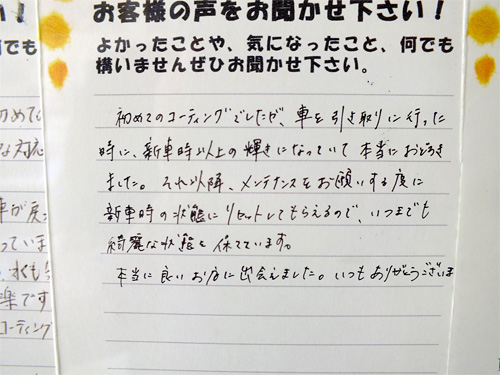 お客様の声をお聞かせ下さい！
よかったことや、気になったこと、何でも
構いませんぜひお聞かせ下さい。
初めてのコーティングでしたが、車を引き取りに行った
時に、新車時以上の輝きになっていて本当におどろき
ました。それ以降、メンテナンスをお願いする度に
新車時の状態にリセットしてもらえるので、いつまでも
綺麗な状態を保てています。
本当に良いお店に出会えました。いつもありがとうございま
さい！
何でも
初めて
な対応
車が戻
っていま
すくも
楽です
コーティング